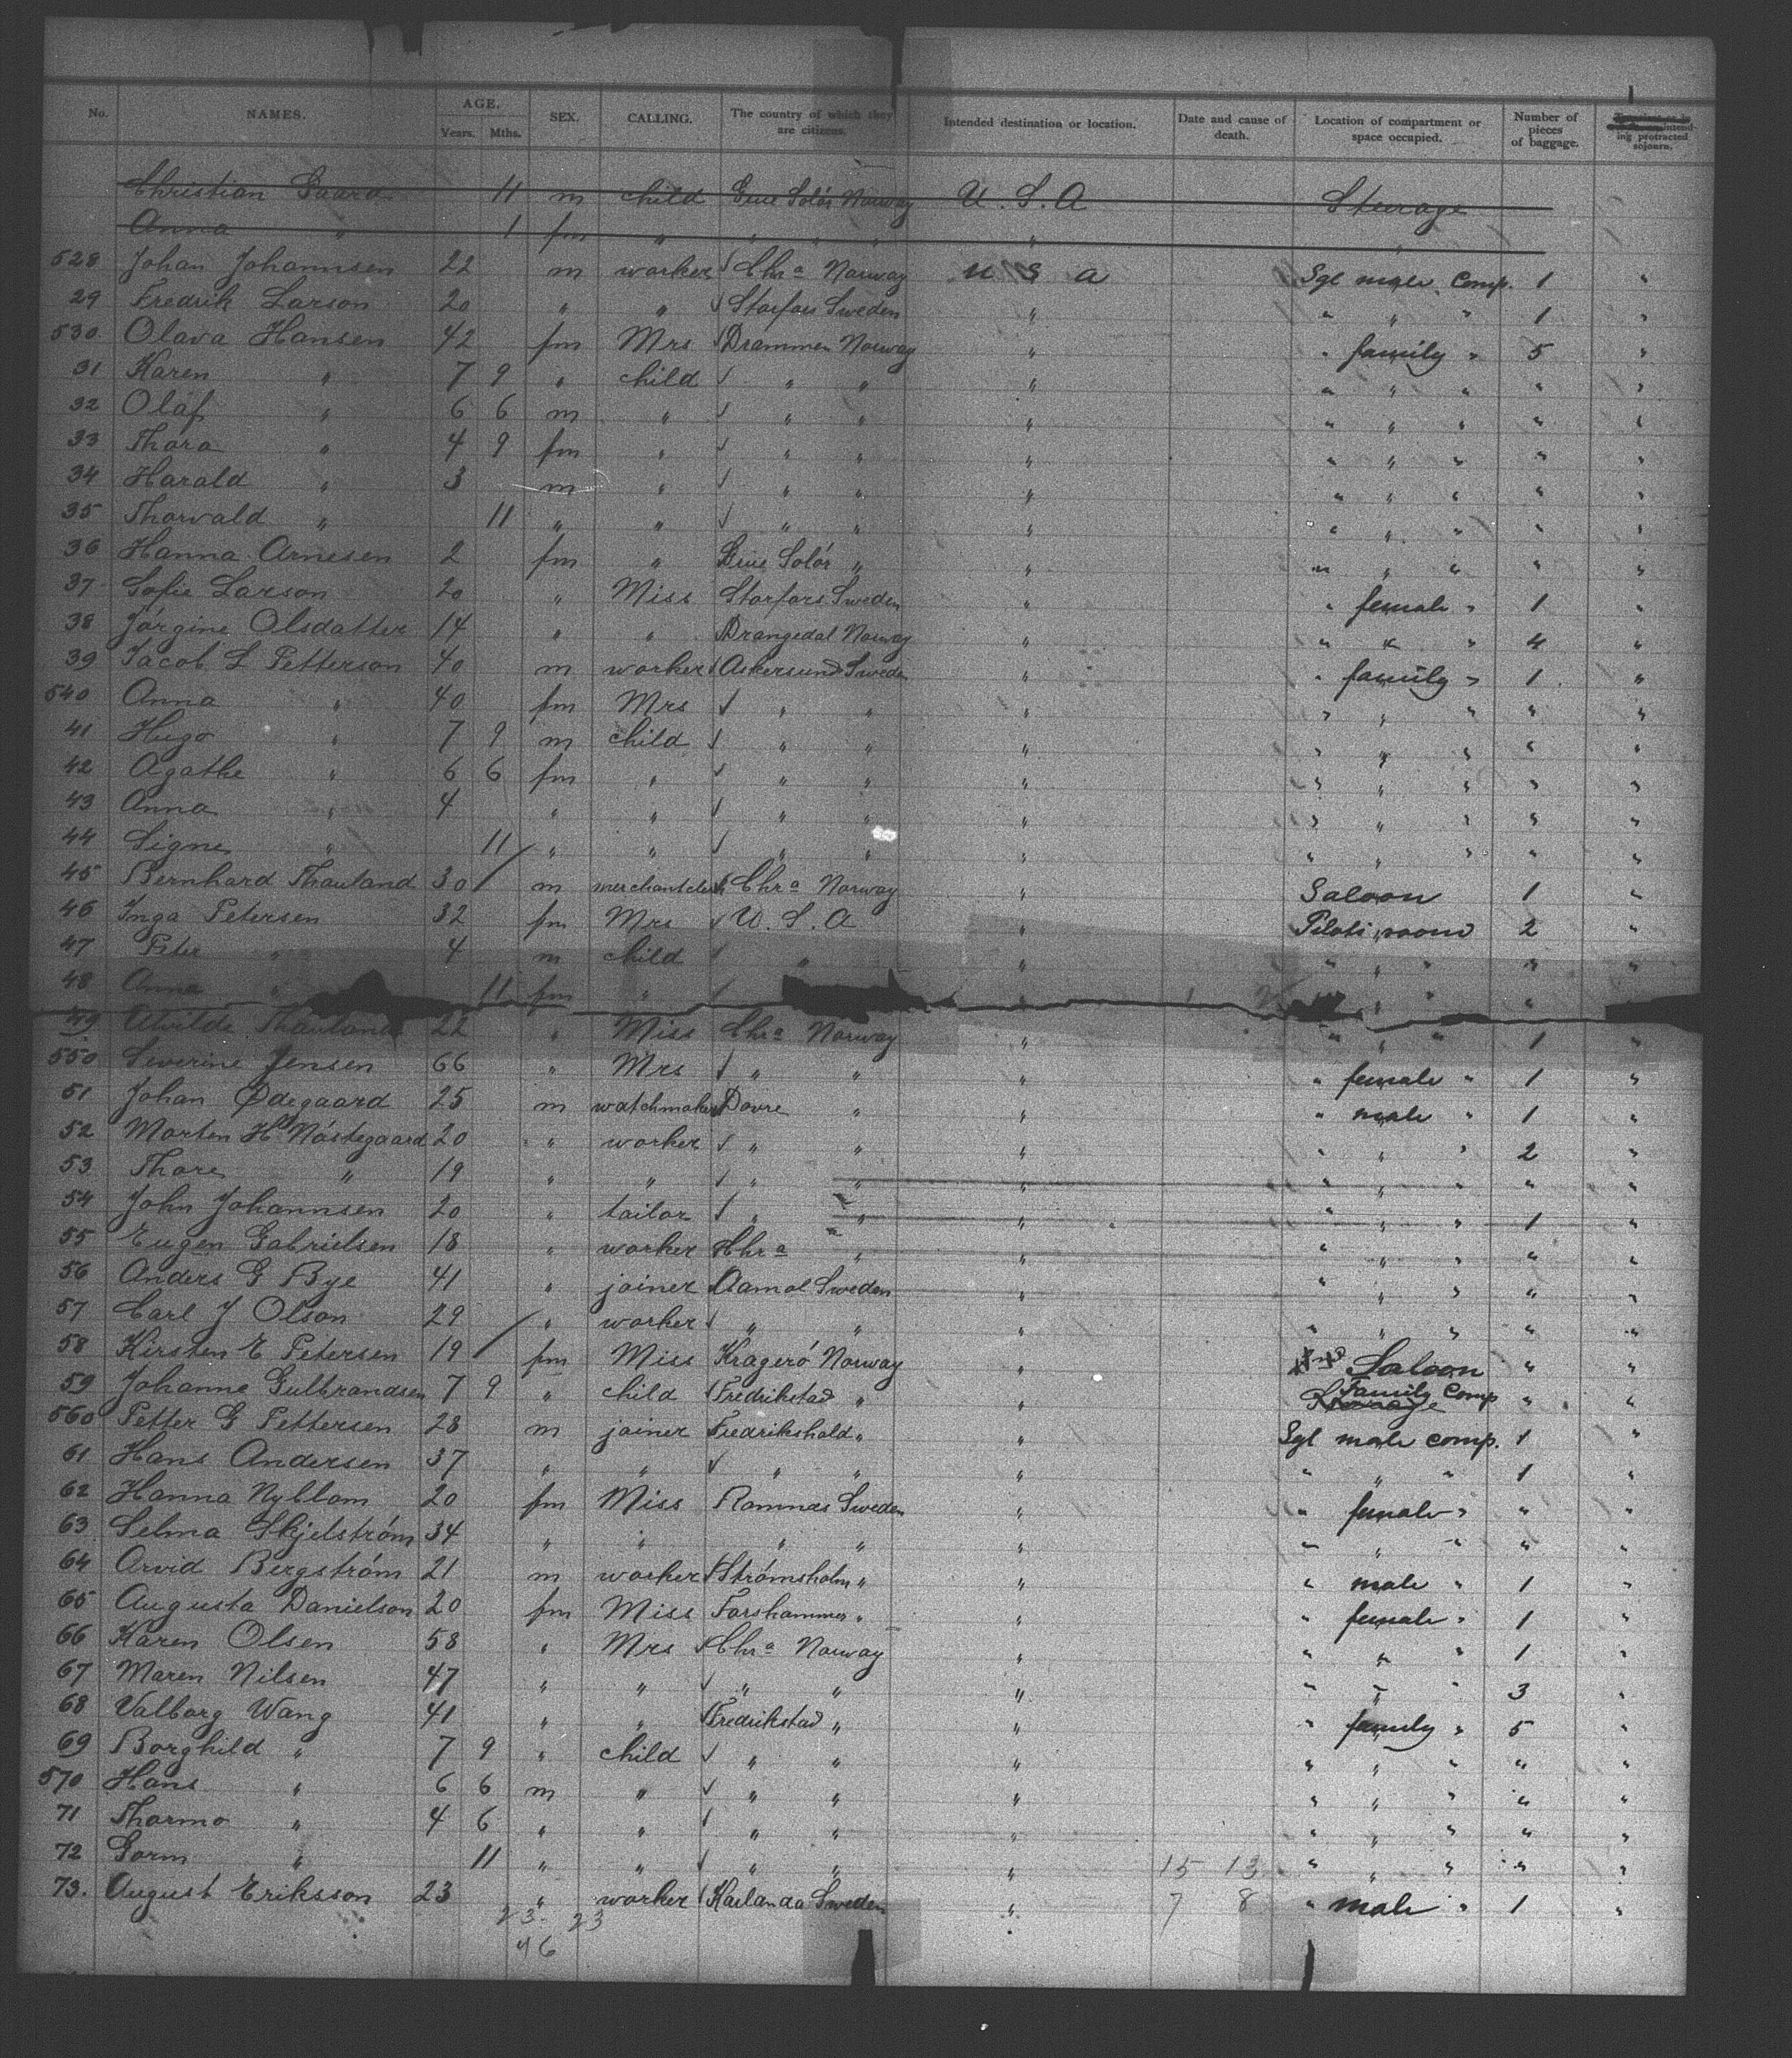 No. NAMES. AGE. Years. Mths. SEX. CALLING. The country of which they are citizens. Intended destination or location. Date and cause of death. Location of compartment or space occupied. Number of pieces of baggage. ing protracted sojourn.
Christian Gaard 11 m child Solór Norway U.S.A Steerage
Anna " 1 fm " " " " "
528 Johan Johannsen 22 m worker Chra Norway U S a Sgl male Comp. 1 "
29 Fredrik Larson 20 " " Storfors Sweden " " " " 1 "
530 Olava Hansen 42 fm Mrs Drammen Norway " " family " 5 "
31 Karen " 7 9 " child " " " " " " " "
32 Olaf " 6 6 m " " " " " " " " "
33 Thora " 4 9 fm " " " " " " " " "
34 Harald " 3 m " " " " " " " " "
35 Thorvald " 11 " " " " " " " " " "
36 Hanna Arnesen 2 fm " Solór " " " " " " "
37 Sofie Larson 20 " Miss Storfors Sweden " " female " 1 "
38 Jórgine Olsdatter 14 " " Drangedal Norway " " " " 4 "
39 Jacob L Petterson 40 m worker Askersund Sweden " " family " 1 "
540 Anna " 40 fm Mrs " " " " " " " "
41 Hugo " 7 9 m child " " " " " " " "
42 Agathe " 6 6 fm " " " " " " " " "
43 Anna " 4 " " " " " " " " " "
44 Signe " 11 " " " " " " " " " "
45 Bernhard Thauland 30 m merchantclerk Chra Norway " Saloon 1 "
46 Inga Petersen 32 fm Mrs U.S.A " Pilots room 2 "
47 Peter " 4 m child " " " " " " "
48 Anna " 11 fm " " " " " "
49 Thauland 22 " Miss Chra Norway " " " " 1 "
550 Severine Jensen 66 " Mrs " " " " female " 1 "
51 Johan Ødegaard 25 m watchmaker Dovre " " " male " 1 "
52 Morten H Nóstegaard 20 " worker " " " " " " 2 "
53 Thore " 19 " " " " " " " " " "
54 John Johannsen 20 " tailor " " " " " " 1 "
55 Eugen Gabrielsen 18 " worker Chra " " " " " " "
56 Anders G Bye 41 " joiner Aamol Sweden " " " " " "
57 Carl J Olson 29 " worker " " " " " " " "
58 Kirsten E Petersen 19 fm Miss Krageró Norway " Saloon " "
59 Johanne Gulbrandsen 7 9 " child Fredrikstad " " Family Comp " "
560 Petter G Pettersen 28 m joiner Fredrikshald " " Sgl male comp. 1 "
61 Hans Andersen 37 " " " " " " " " 1 "
62 Hanna Nyblom 20 fm Miss Ramnas Sweden " " female " " "
63 Selma Skjelstróm 34 " " " " " " " " " "
64 Arvid Bergstróm 21 m worker Strómsholm " " " male " 1 "
65 Augusta Danielson 20 fm Miss Farshammer " " " female " 1 "
66 Karen Olsen 58 " Mrs Chra Norway " " " " 1 "
67 Maren Nilsen 47 " " " " " " " " 3 "
68 Valborg Wang 41 " " Fredrikstad " " " family " 5 "
69 Borghild " 7 9 " child " " " " " " " "
570 Hans " 6 6 m " " " " " " " " "
71 Thormo " 4 6 " " " " " " " " " "
72 Gorm " 11 " " " " " 15 13 " " " " "
73. August Eriksson 23 " worker Sweden " 7 8 " male " 1 "
23 - 23
46